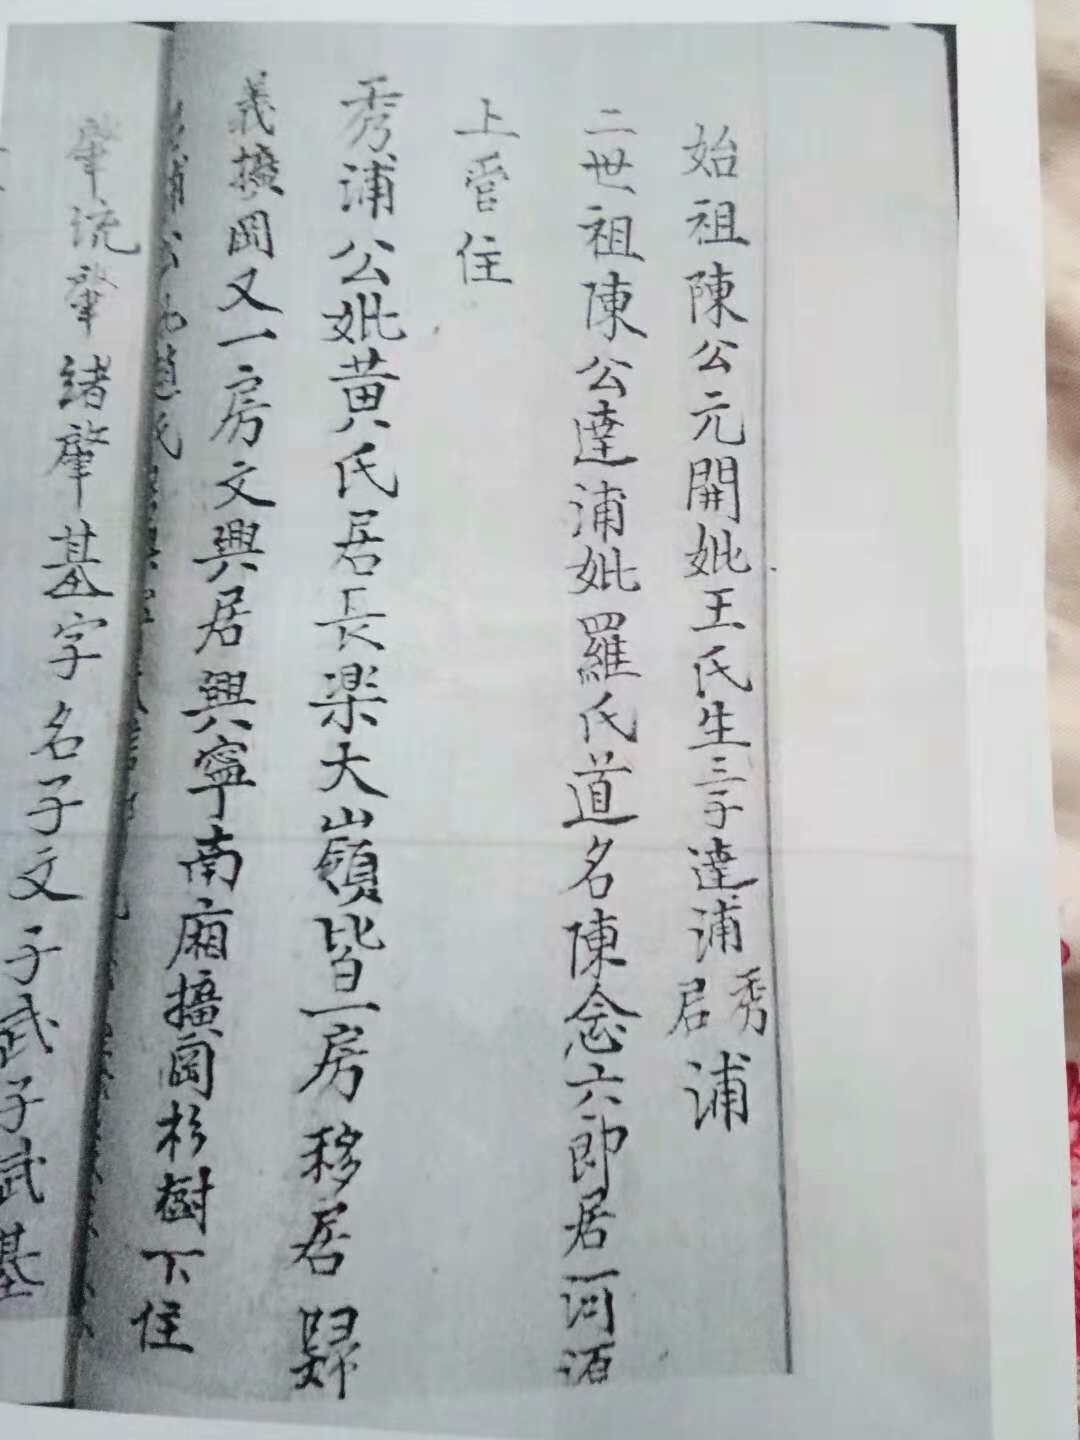 始祖陳公元開妣王氏生三子達浦秀浦君浦
二世祖陳公達浦妣羅氏道名陳念六郎居河源
上管住
秀浦公妣黃氏居長楽大嶺皆一房移居歸
義擴岡又一房文興居興寧南廂擴岡杉樹下住
肇流肇緒肇基字名子文子武子斌基